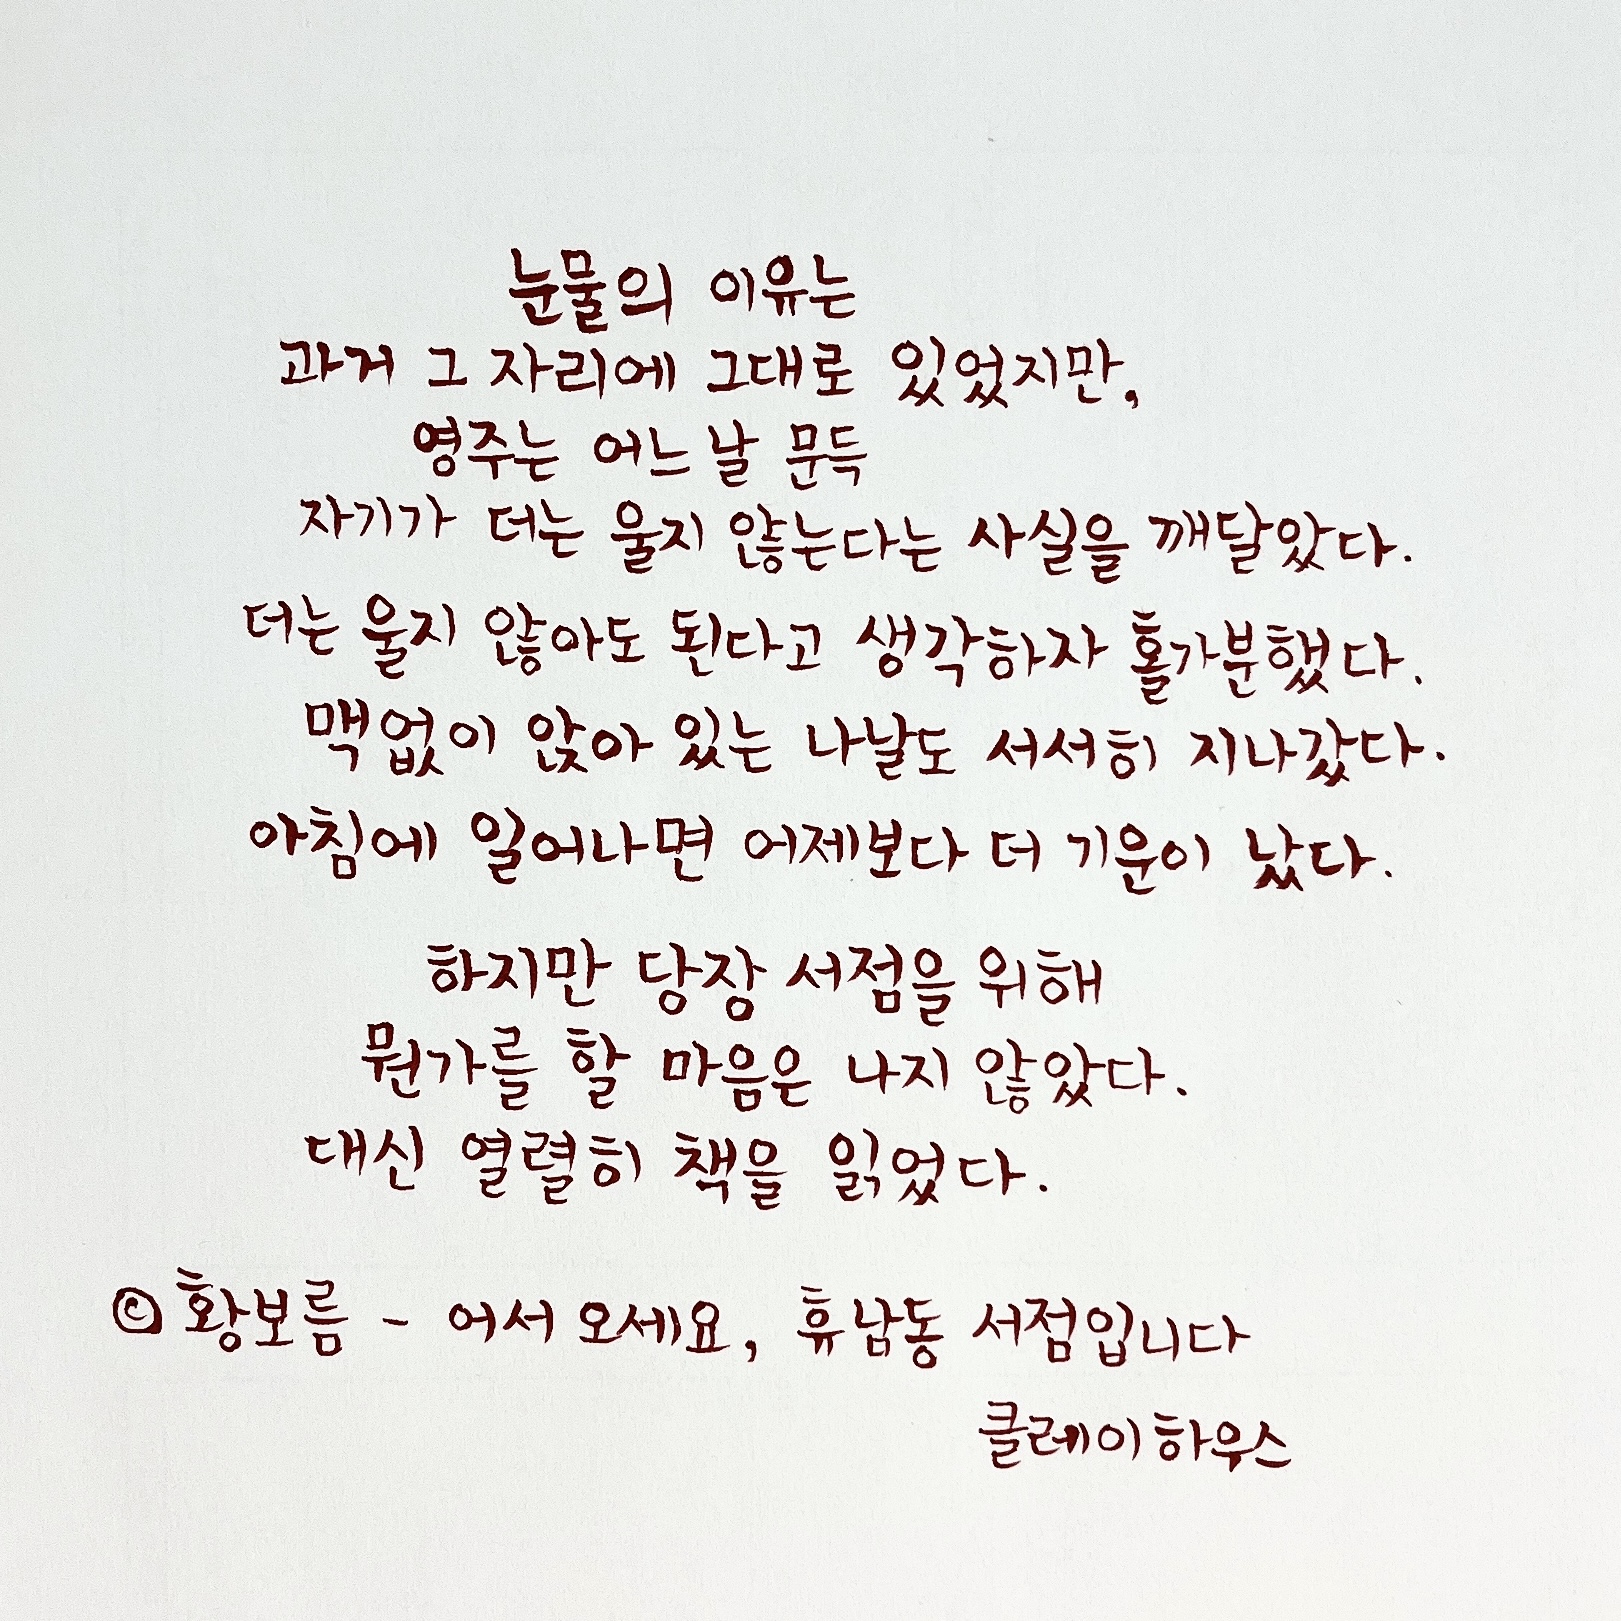 눈물의 이유는
과거 그 자리에 그대로 있었지만,
영주는 어느 날 문득
자기가 더는 울지 않는다는 사실을 깨달았다.
더는 울지 않아도 된다고 생각하자 홀가분했다.
맥없이 앉아 있는 나날도 서서히 지나갔다.
아침에 일어나면 어제보다 더 기운이 났다.
하지만 당장 서점을 위해
뭔가를 할 마음은 나지 않았다.
대신 열렬히 책을 읽었다.
© 황보름 - 어서 오세요, 휴남동 서점입니다
클레이하우스